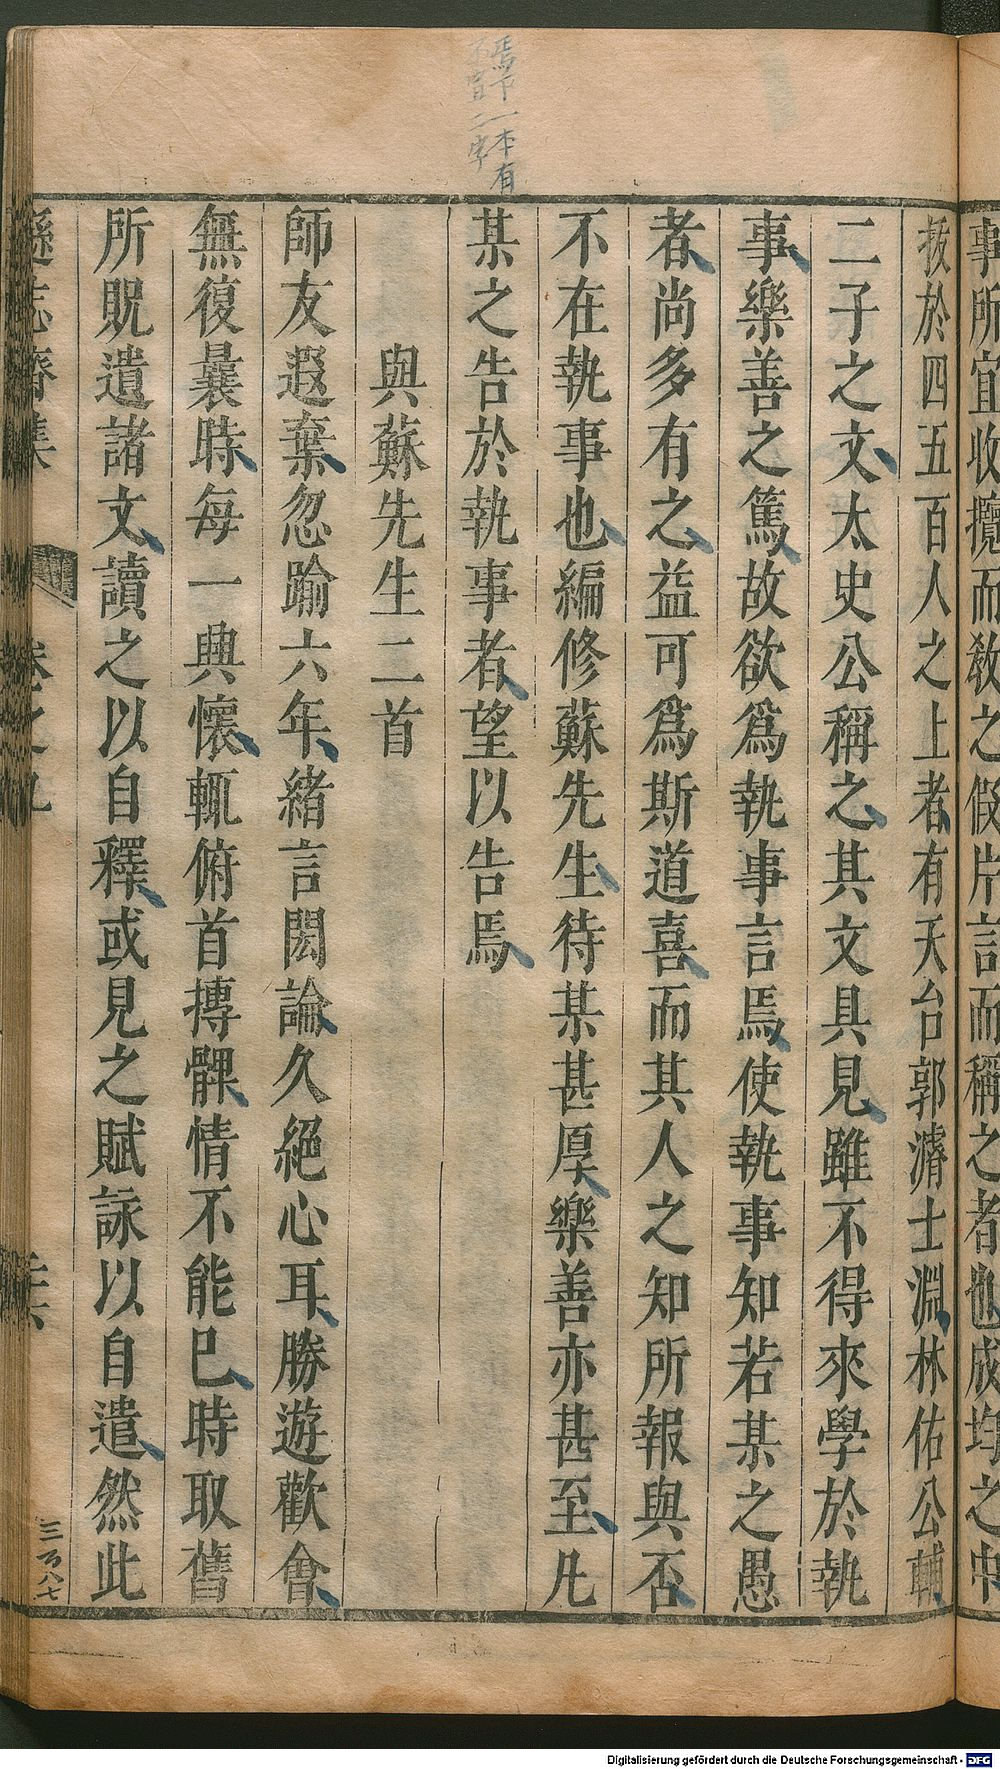 事所宜收攬而教之假片言而稱之者也成均之中
拔於四五百人之上者有天台郭濬士淵林佑公輔
二子之文太史公稱之其文具見雖不得來學於執
事樂善之篤故欲爲執事言焉使執事知若某之愚
者尚多有之益可爲斯道喜而其人之知所報與否
不在執事也編修蘇先生待某甚厚樂善亦甚至凡
某之告於執事者望以告焉
焉下一本有
不宣二字
與蘇先生二首
師友遐棄忽踰六年緒言閎論久絕心耳勝遊歡會
無復曩時每一興懷輒俯首搏髀情不能已時取舊
所貺遺諸文讀之以自釋或見之賦詠以自遣然此
遜志齋集
卷之九
三六
三百八七
Digitalisierung gefördert durch die Deutsche Forschungsgemeinschaft - DFG